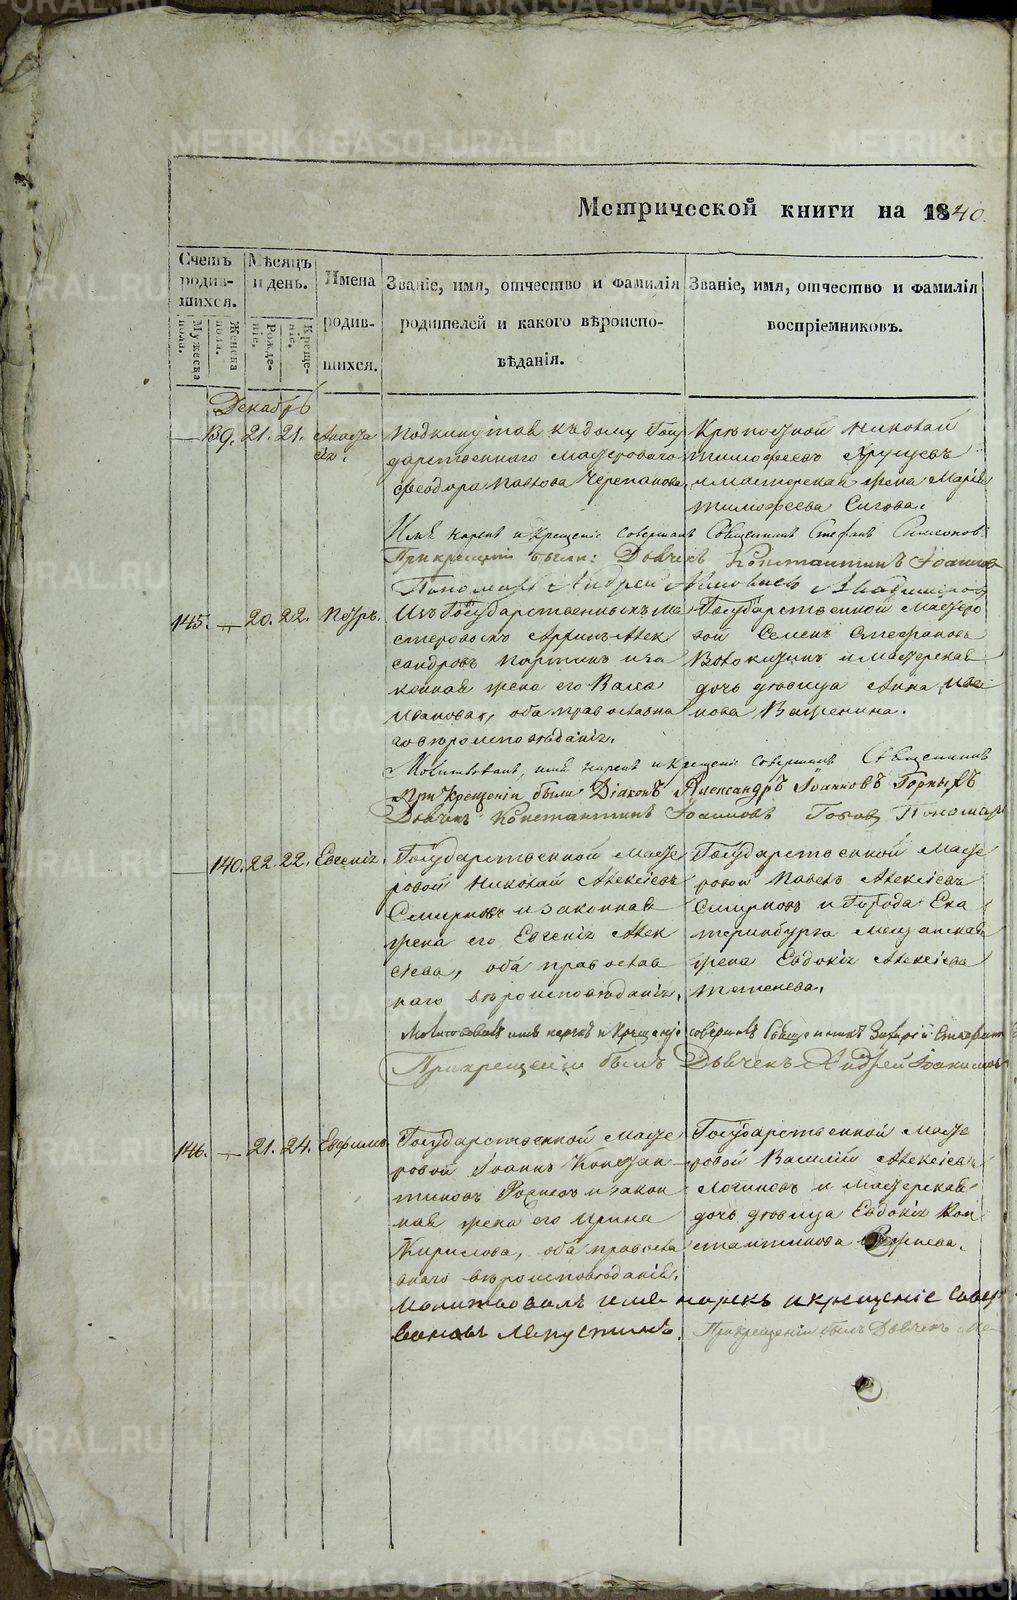 METRIKI.GASO-URAL.RU
Метрической книги на 1840.
Счетъ родив-шихся.
Мужеска пола.
Женска пола.
Мѣсяцъ и день.
Рожде-ніе.
Креще-ніе.
Имена родив-шихся.
Званіе, имя, отчество и фамилія
родителей и какого вѣроиспо-
вѣданія.
Званіе, имя, отчество и фамилія
воспріемниковъ.
Декабрь
139. 21. 21.
Подкинутая къ дому Госу
дарственнаго мастероваго
Феодора Павлова Черепанова
Крѣпостной Николай
Тимофеевъ
и мастерская жена Марія
Тимофеева Сигова.
Имя нарекъ и крещеніе совершалъ Священникъ Стефанъ
При крещеніи были: Дьячекъ Константинъ Іоанновъ
Пономарь Андрей
145. — 20. 22. Петръ.
Изъ Государственныхъ ма
стеровыхъ Алек
сандровъ и за
конная жена его Васса
Иванова, оба православна
го вѣроисповѣданія.
Государственной мастеро
вой Семенъ Стефановъ
и мастерская
дочь дѣвица Анна Ива
нова
Молитвовалъ, имя нарекъ и крещеніе совершалъ Священникъ
При крещеніи были Діаконъ Александръ Іоанновъ Горныхъ
Дьячекъ Константинъ Іоанновъ Пономарь
— 140. 22. 22. Евгенія.
Государственной масте
ровой Николай Алексіевъ
Смирновъ и законная
жена его Евгенія Алек
сіева, оба православ
наго вѣроисповѣданія.
Государственной масте
ровой Павелъ Алексіевъ
Смирновъ и Города Ека
теринбурга мещанская
жена Евдокія Алексіева
Молитвовалъ имя нарекъ и крещеніе совершалъ Священникъ
При крещеніи былъ Дьячекъ Андрей
146. — 21. 24. Евфимій.
Государственной масте
ровой Іоаннъ Констан
тиновъ и закон
ная жена его Ирина
Кирилова, оба православ
наго вѣроисповѣданія.
Государственной масте
ровой Василій Алексіевъ
Логиновъ и мастерская
дочь дѣвица Евдокія Кон
стантинова
Молитвовалъ имя нарекъ и крещеніе совер
При крещеніи былъ Дьячекъ